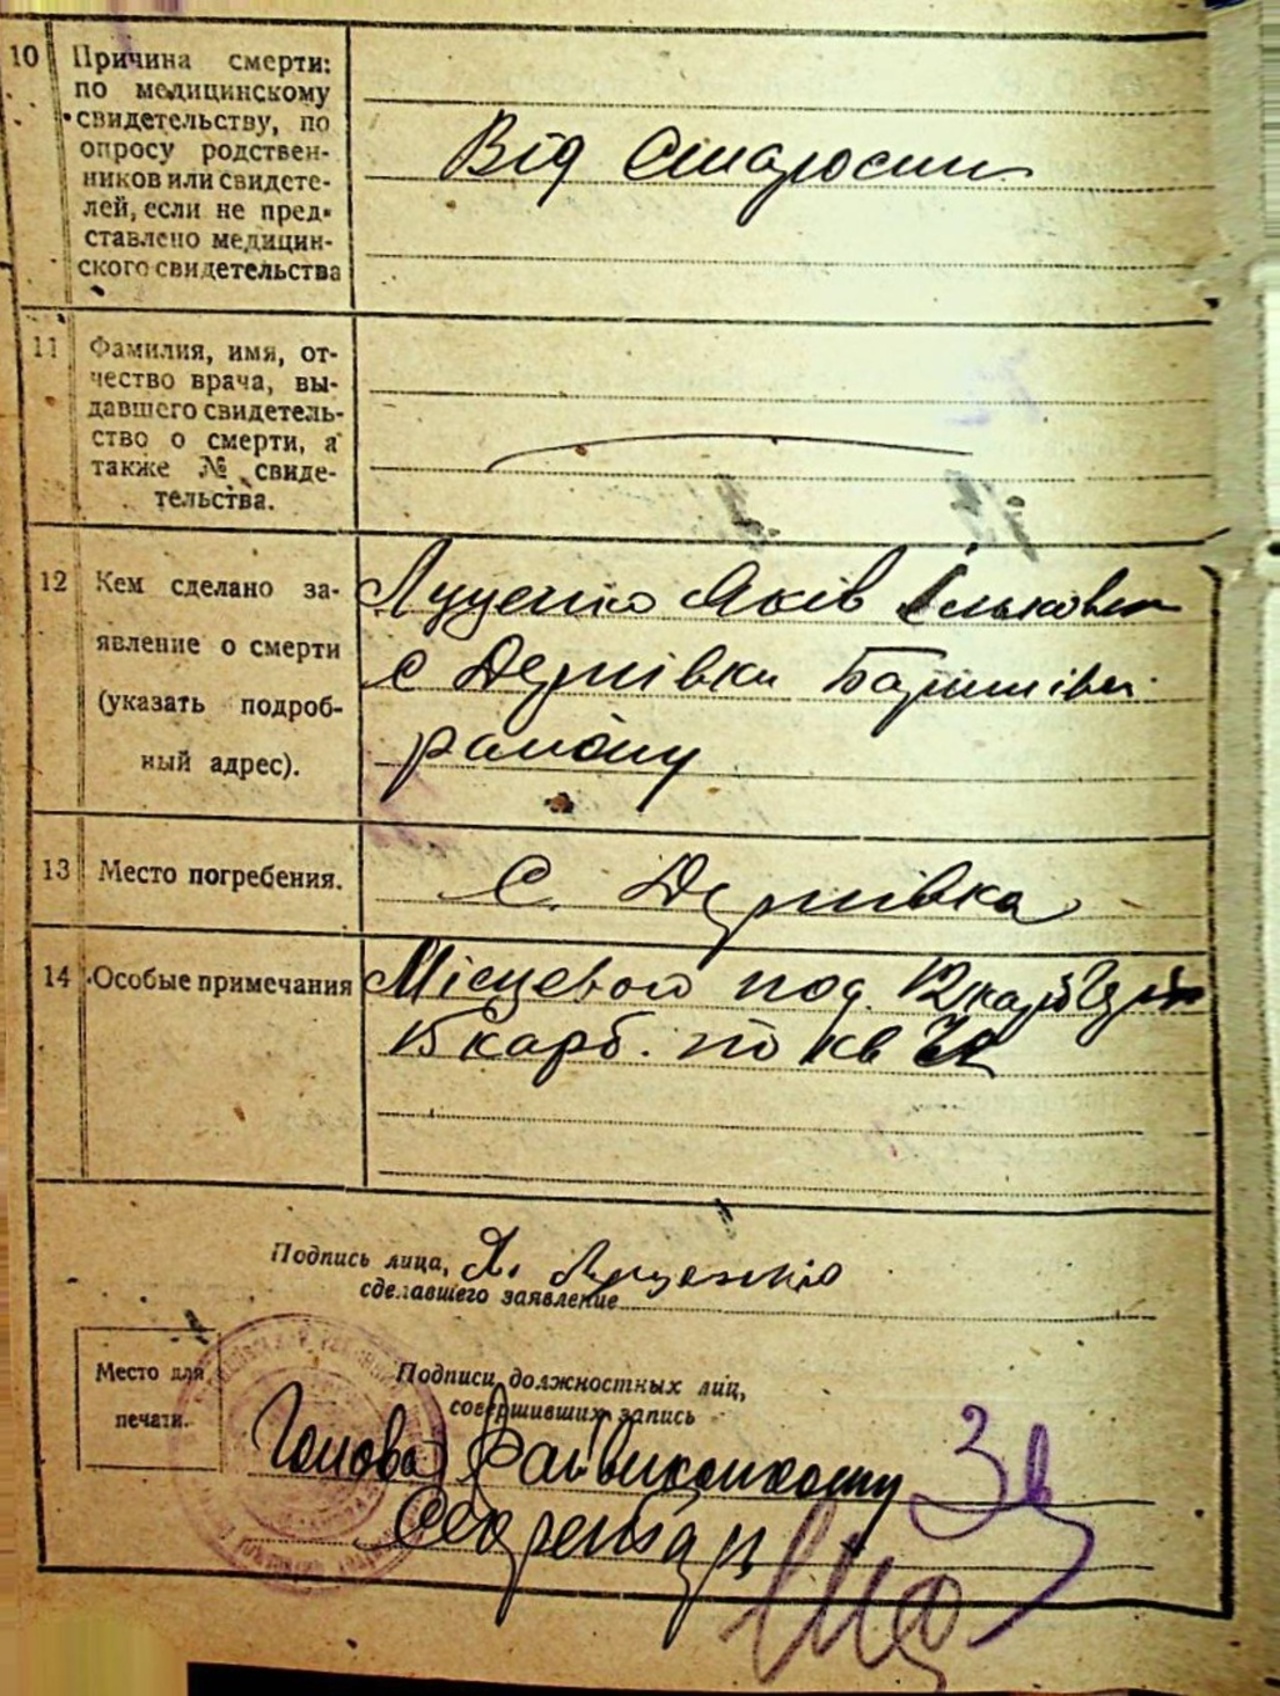 10 Причина смерти:
по медицинскому
свидетельству, по
опросу родствен-
ников или свидете-
лей, если не пред-
ставлено медицин-
ского свидетельства
Від Старости
11 Фамилия, имя, от-
чество врача, вы-
давшего свидетель-
ство о смерти, а
также № свиде-
тельства.
12 Кем сделано за-
явление о смерти
(указать подроб-
ный адрес).
Луценко Яків Ількович
с Дернівки Баришівськ.
району
13 Место погребения.
С. Дернівка
14 Особые примечания
Місцевого под. 12 карб
15 карб. по кв
Подпись лица,
сделавшего заявление
Я. Луценко
Место для
печати.
Подписи должностных лиц,
совершивших запись
Голова Райвиконкому
Секретар